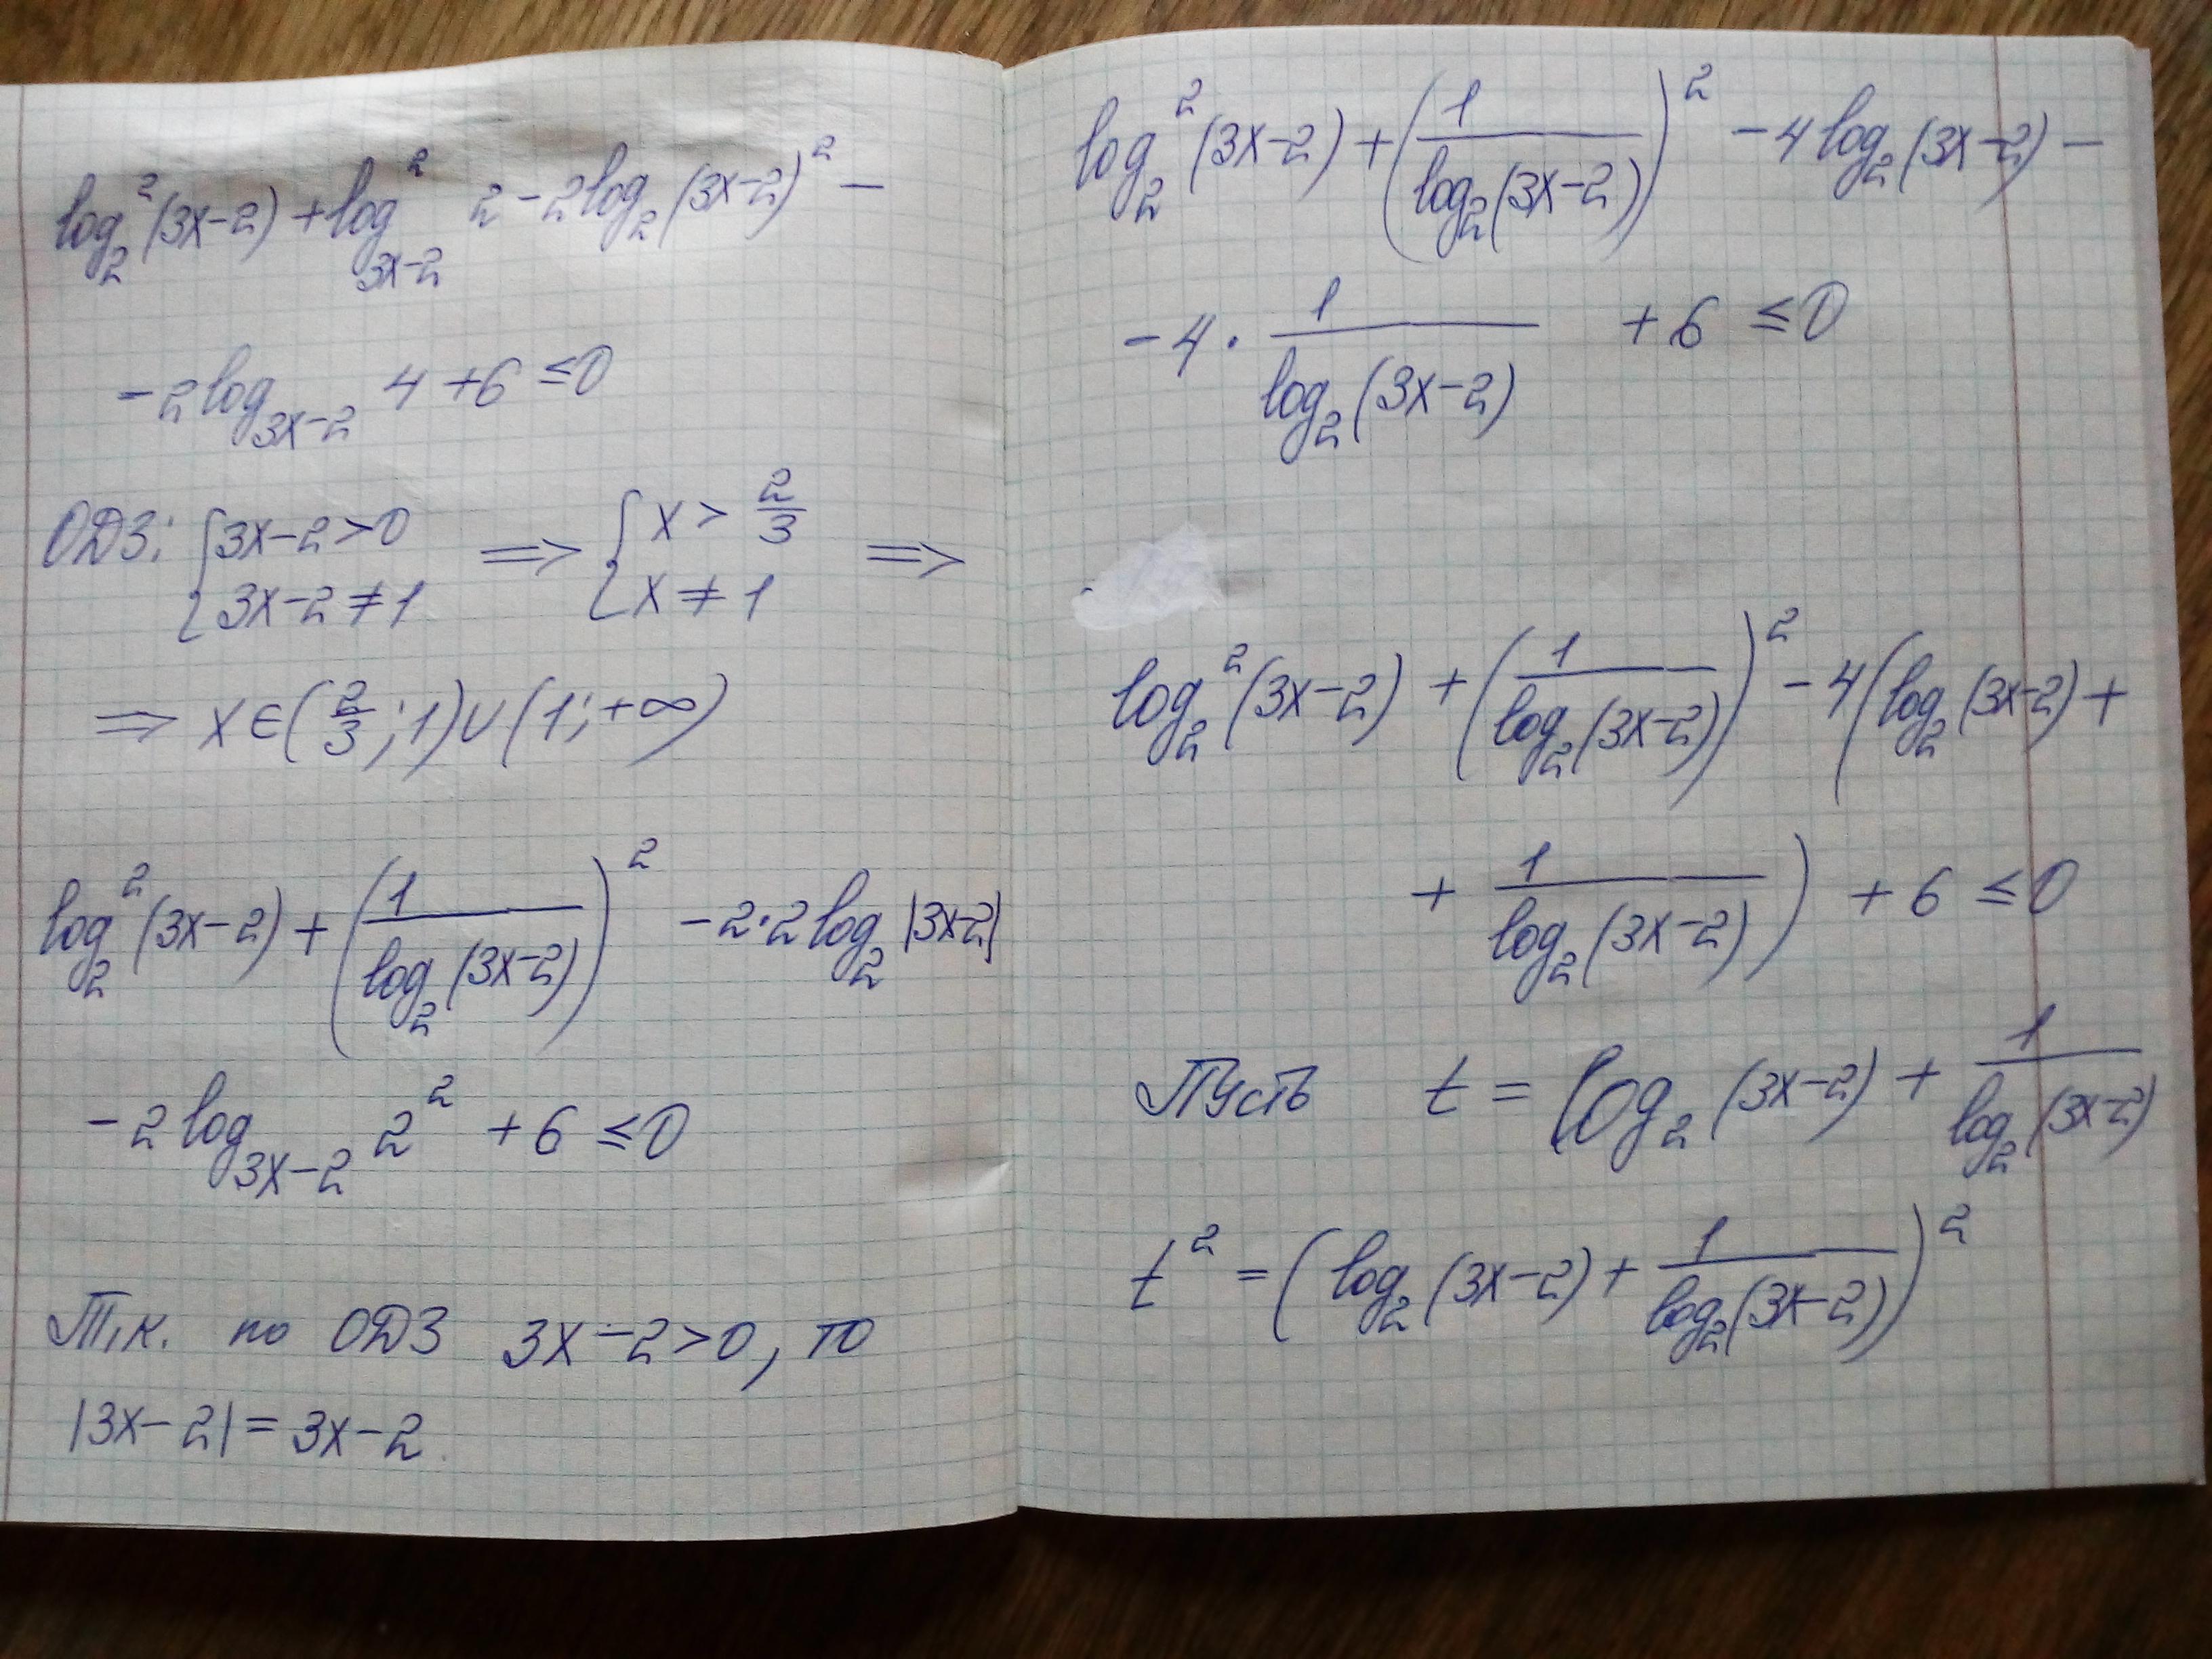 log₂²(3x-2) + log²₃ₓ₋₂ 2 - 2log₂(3x-2)² -
- 2log₃ₓ₋₂ 4 + 6 ≤ 0
ОДЗ: { 3x-2>0 ; 3x-2≠1 ⇒ { x > 2/3 ; x ≠ 1 ⇒
⇒ x ∈ (2/3; 1) ∪ (1; +∞)
log₂²(3x-2) + (1/log₂(3x-2))² - 2·2log₂|3x-2|
- 2log₃ₓ₋₂ 2² + 6 ≤ 0
Т.к. по ОДЗ 3x-2>0, то
|3x-2| = 3x-2.
log₂²(3x-2) + (1/log₂(3x-2))² - 4log₂(3x-2) -
- 4 · 1/log₂(3x-2) + 6 ≤ 0
log₂²(3x-2) + (1/log₂(3x-2))² - 4(log₂(3x-2) +
+ 1/log₂(3x-2)) + 6 ≤ 0
Пусть t = log₂(3x-2) + 1/log₂(3x-2)
t² = (log₂(3x-2) + 1/log₂(3x-2))²